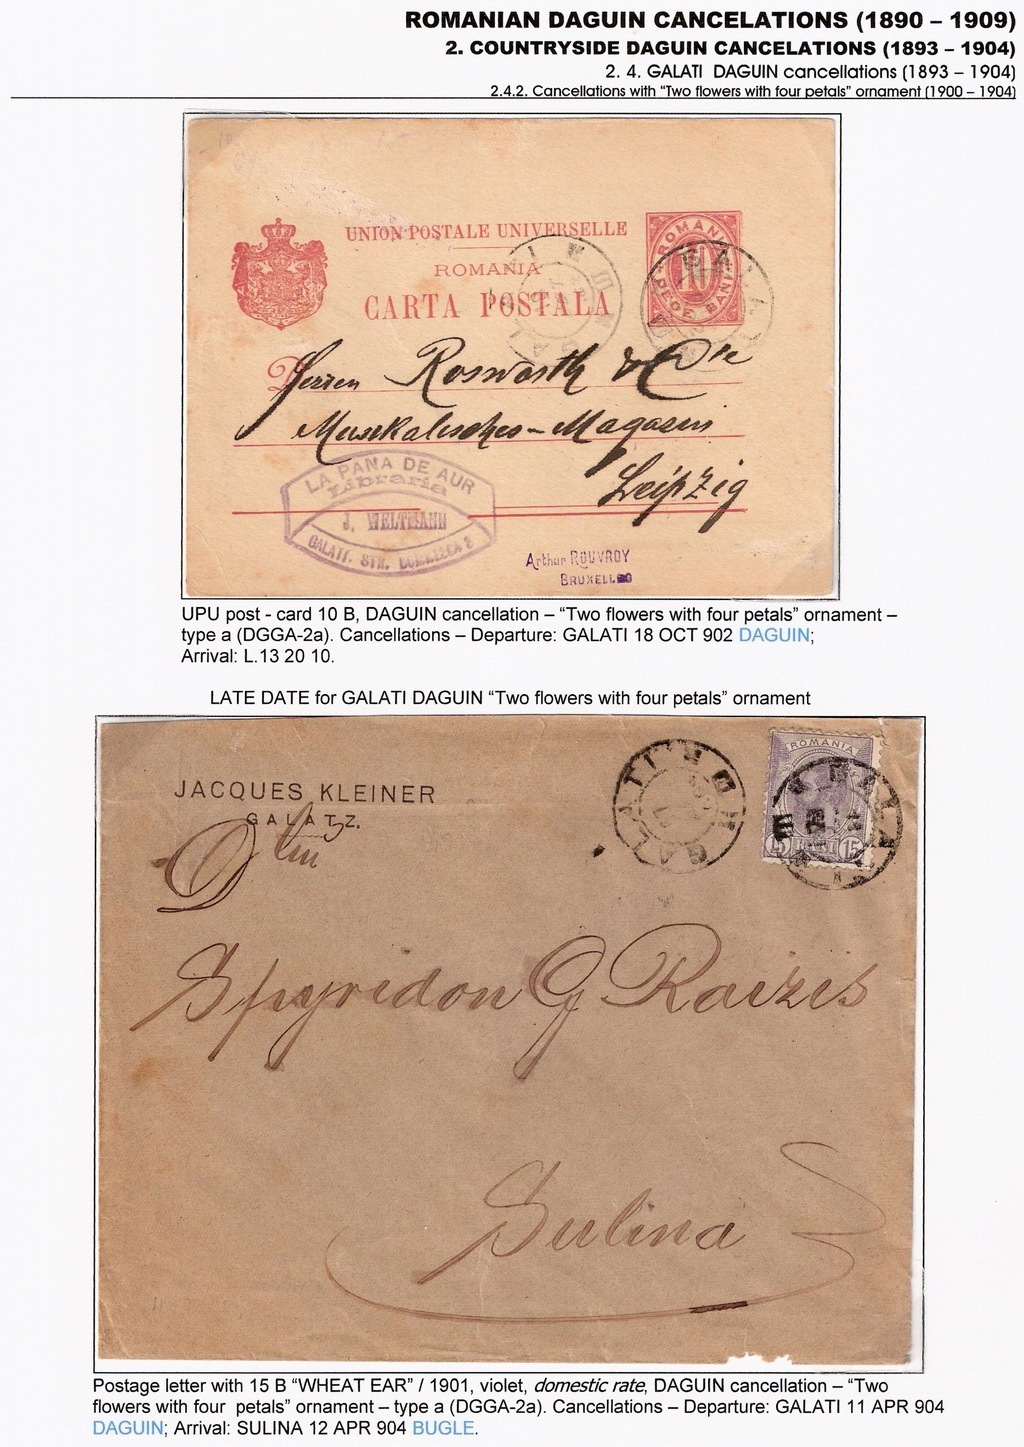 ROMANIAN DAGUIN CANCELATIONS (1890 – 1909)
2. COUNTRYSIDE DAGUIN CANCELATIONS (1893 – 1904)
2. 4. GALATI DAGUIN cancellations (1893 – 1904)
2.4.2. Cancellations with “Two flowers with four petals” ornament (1900 – 1904)
UNION POSTALE UNIVERSELLE
ROMANIA
CARTA POSTALA
ROMANIA
10
ZECE BANI
GALATI
GALATI
Herren Rosworth & Cie
Musikalisches-Magasin
Leipzig
LA PANA DE AUR
Libraria
J. WELTMANN
GALATI. STR. DOMNEASCA 2
Arthur ROUVROY
BRUXELLES
UPU post - card 10 B, DAGUIN cancellation – “Two flowers with four petals” ornament –
type a (DGGA-2a). Cancellations – Departure: GALATI 18 OCT 902 DAGUIN;
Arrival: L.13 20 10.
LATE DATE for GALATI DAGUIN “Two flowers with four petals” ornament
JACQUES KLEINER
GALATZ.
GALATI
ROMANIA
15 BANI 15
GALATI
Dlui
Spyridon G Raizis
Sulina
Postage letter with 15 B “WHEAT EAR” / 1901, violet, domestic rate, DAGUIN cancellation – “Two
flowers with four petals” ornament – type a (DGGA-2a). Cancellations – Departure: GALATI 11 APR 904
DAGUIN; Arrival: SULINA 12 APR 904 BUGLE.